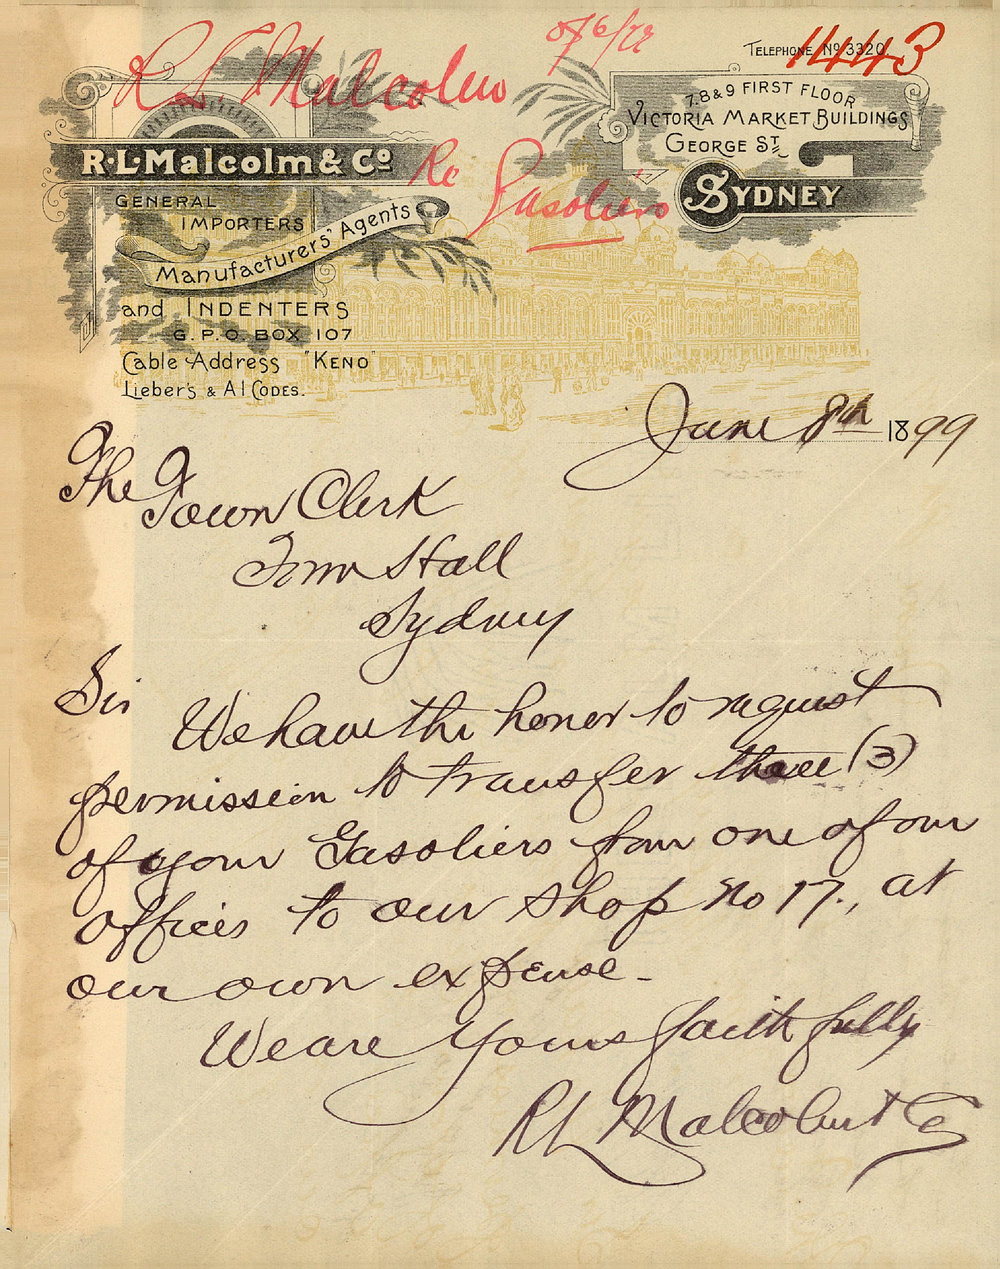 R L Malcolm
Re Gasoliers
1443
TELEPHONE No 3320
7.8 & 9 FIRST FLOOR
VICTORIA MARKET BUILDINGS
GEORGE ST.
SYDNEY
R.L. Malcolm & Co
GENERAL
IMPORTERS
Manufacturers' Agents
and INDENTERS
G.P.O. BOX 107
Cable Address "KENO"
Lieber's & A1 CODES.
June 8th 1899
The Town Clerk
Town Hall
Sydney
Sir
We have the honor to request
permission to transfer three (3)
of your Gasoliers from one of our
offices to our shop No 17., at
our own expense -
We are Yours faithfully
R L Malcolm & Co